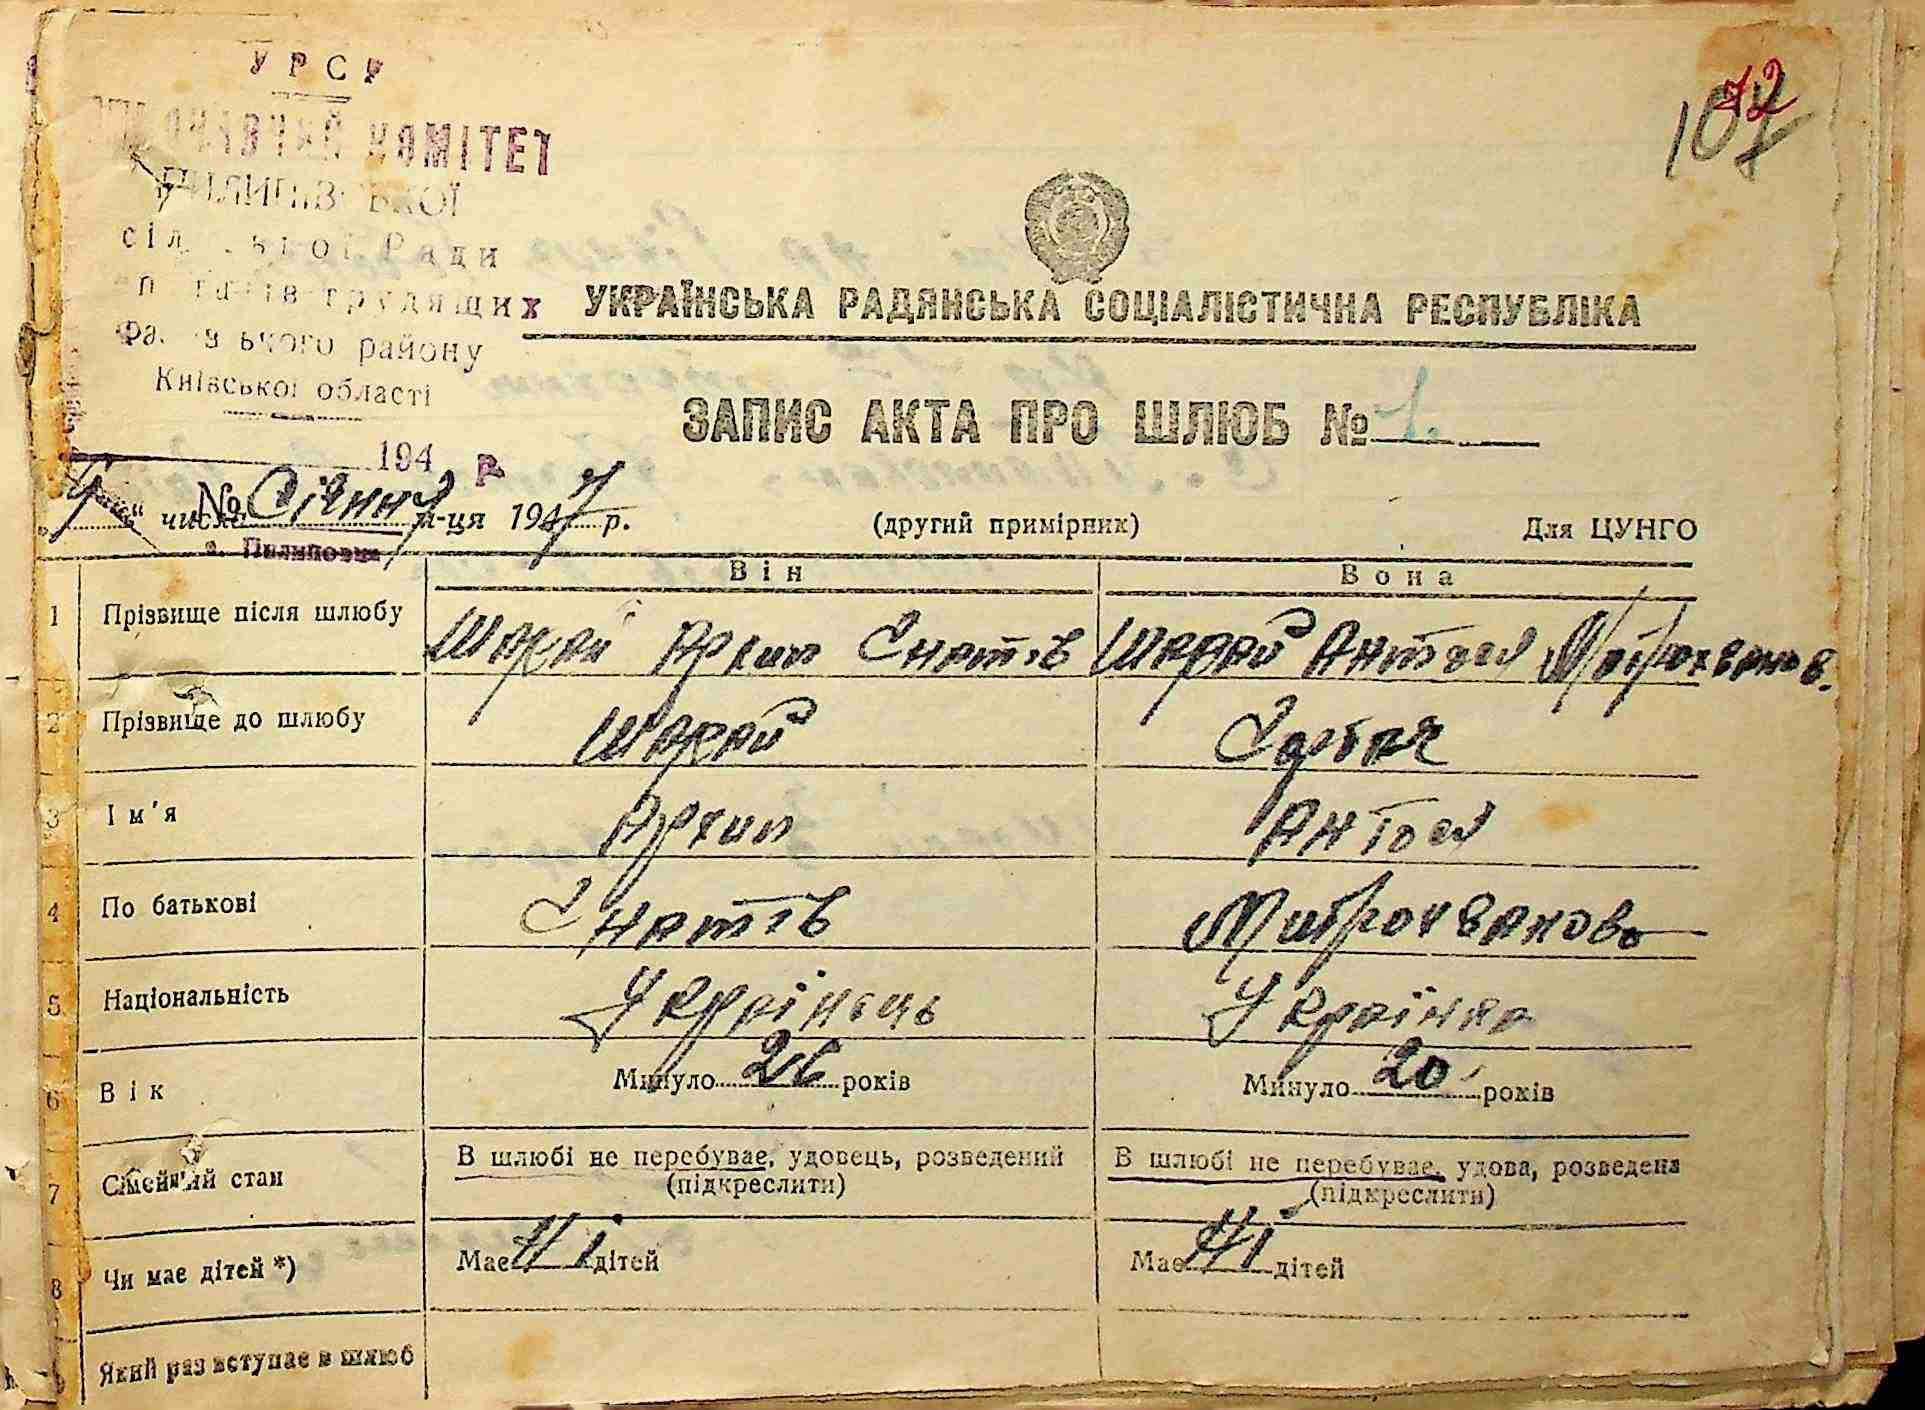 УРСР
КОМІТЕТ
сіл ької Ради
трудящих
району
Київської області
194 р.
72
107
УКРАЇНСЬКА РАДЯНСЬКА СОЦІАЛІСТИЧНА РЕСПУБЛІКА
ЗАПИС АКТА ПРО ШЛЮБ № 1.
№
число Січня м-ця 1947 р.
с. Пилиповка
(другий примірник)
Для ЦУНГО
Він Вона
1 Прізвище після шлюбу Шарай Архип Гнатів Шарай Антося
2 Прізвище до шлюбу Шарай
3 Ім'я Архип Антося
4 По батькові Гнатів
5 Національність Українець Українка
6 Вік Минуло 26 років Минуло 20 років
7 Сімейний стан В шлюбі не перебуває, удовець, розведений (підкреслити) В шлюбі не перебуває, удова, розведена (підкреслити)
8 Чи має дітей *) Має Ні дітей Має Ні дітей
Який раз вступає в шлюб